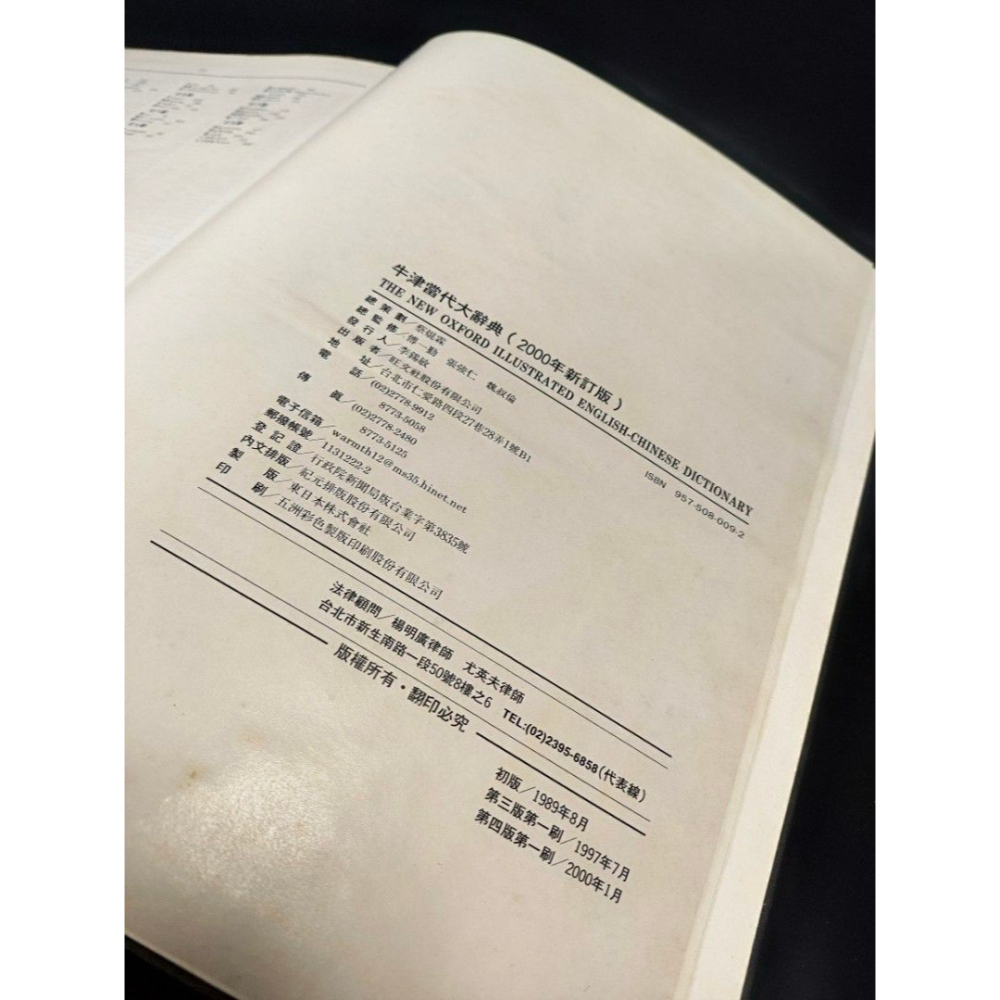 牛津當代大辭典（2000年新訂版）
THE NEW OXFORD ILLUSTRATED ENGLISH-CHINESE DICTIONARY
ISBN 957-508-009-2
總策劃/蔡焜霖
總監修/傅一勤 張強仁 魏叔倫
發行人/李錫敏
出版者/旺文社股份有限公司
地址/台北市仁愛路四段27巷28弄1號B1
電話/(02)2778-9912
8773-5058
傳真/(02)2778-2480
8773-5125
電子信箱/warmth12@ms35.hinet.net
郵撥帳號/1131222-2
登記證/行政院新聞局版台業字第3835號
內文排版/紀元排版股份有限公司
製版/東日本株式會社
印刷/五洲彩色製版印刷股份有限公司
法律顧問/楊明廣律師 尤英夫律師
台北市新生南路一段50號8樓之6 TEL:(02)2395-6858(代表線)
版權所有・翻印必究
初版/1989年8月
第三版第一刷/1997年7月
第四版第一刷/2000年1月